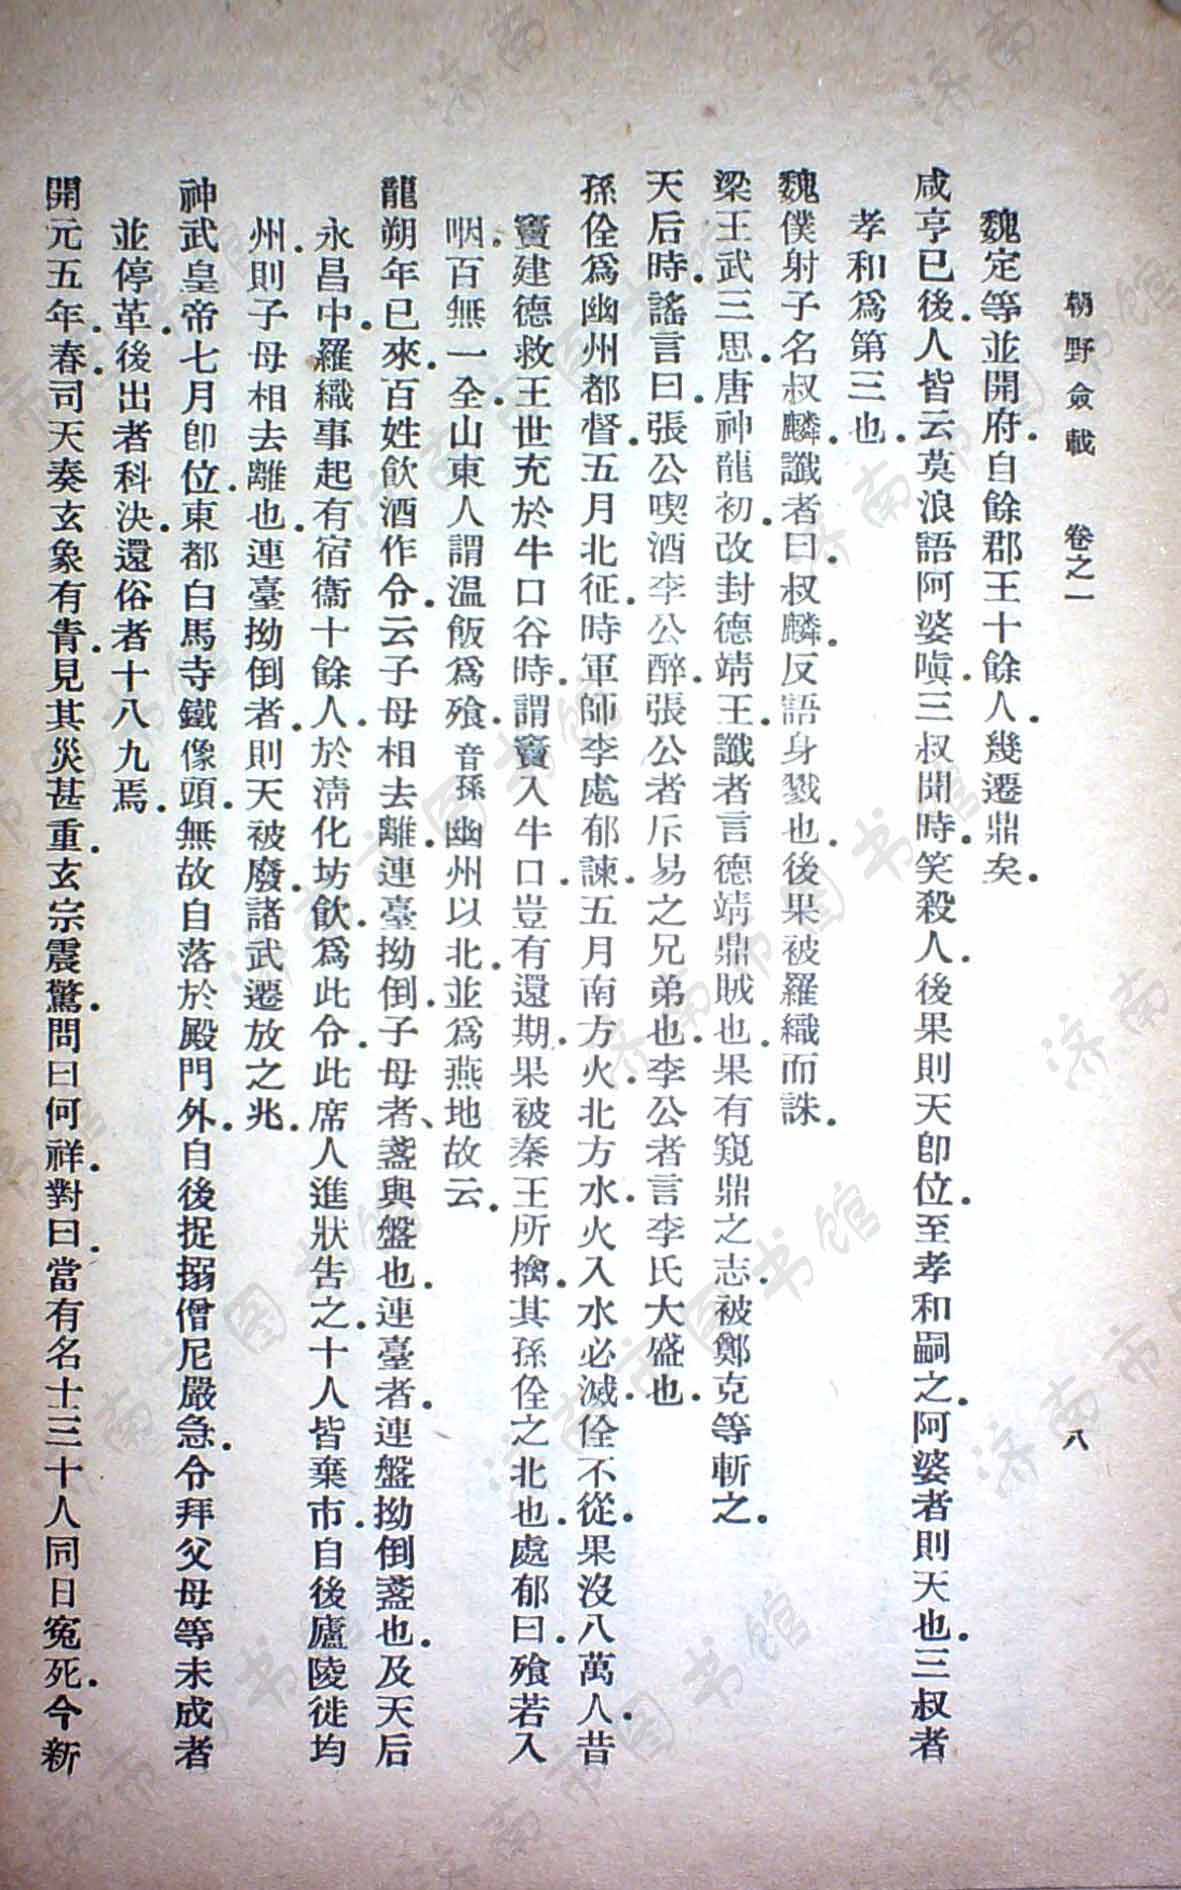 朝野僉載　卷之一　八
魏定等並開府.自餘郡王十餘人.幾遷鼎矣.
咸亨已後.人皆云.莫浪語阿婆嗔.三叔聞時.笑殺人.後果則天卽位.至孝和嗣之.阿婆者則天也.三叔者
孝和爲第三也.
魏僕射子名叔麟.讖者曰.叔麟.反語身戮也.後果被羅織而誅.
梁王武三思.唐神龍初.改封德靖王.讖者言德靖鼎賊也.果有窺鼎之志.被鄭克等斬之.
天后時.謠言曰.張公喫酒李公醉.張公者斥易之兄弟也.李公者言李氏大盛也.
孫佺爲幽州都督.五月北征.時軍師李處郁諫.五月南方火.北方水.火入水必滅.佺不從.果沒八萬人.昔
竇建德救王世充於牛口谷時.謂竇入牛口.豈有還期.果被秦王所擒.其孫佺之北也.處郁曰.飱若入
咽.百無一全.山東人謂溫飯爲飱.音孫幽州以北.並爲燕地故云.
龍朔年已來.百姓飮酒作令.云子母相去離.連臺拗倒.子母者、盞與盤也.連臺者.連盤拗倒盞也.及天后
永昌中.羅織事起.有宿衞十餘人.於淸化坊飮.爲此令.此席人進狀告之.十人皆棄市.自後廬陵徙均
州.則子母相去離也.連臺拗倒者.則天被廢.諸武遷放之兆.
神武皇帝七月卽位.東都白馬寺鐵像頭.無故自落於殿門外.自後捉搦僧尼嚴急.令拜父母等未成者
並停革.後出者科決.還俗者十八九焉.
開元五年.春.司天奏玄象有眚.見其災甚重.玄宗震驚.問曰何祥.對曰.當有名士三十人同日冤死.今新